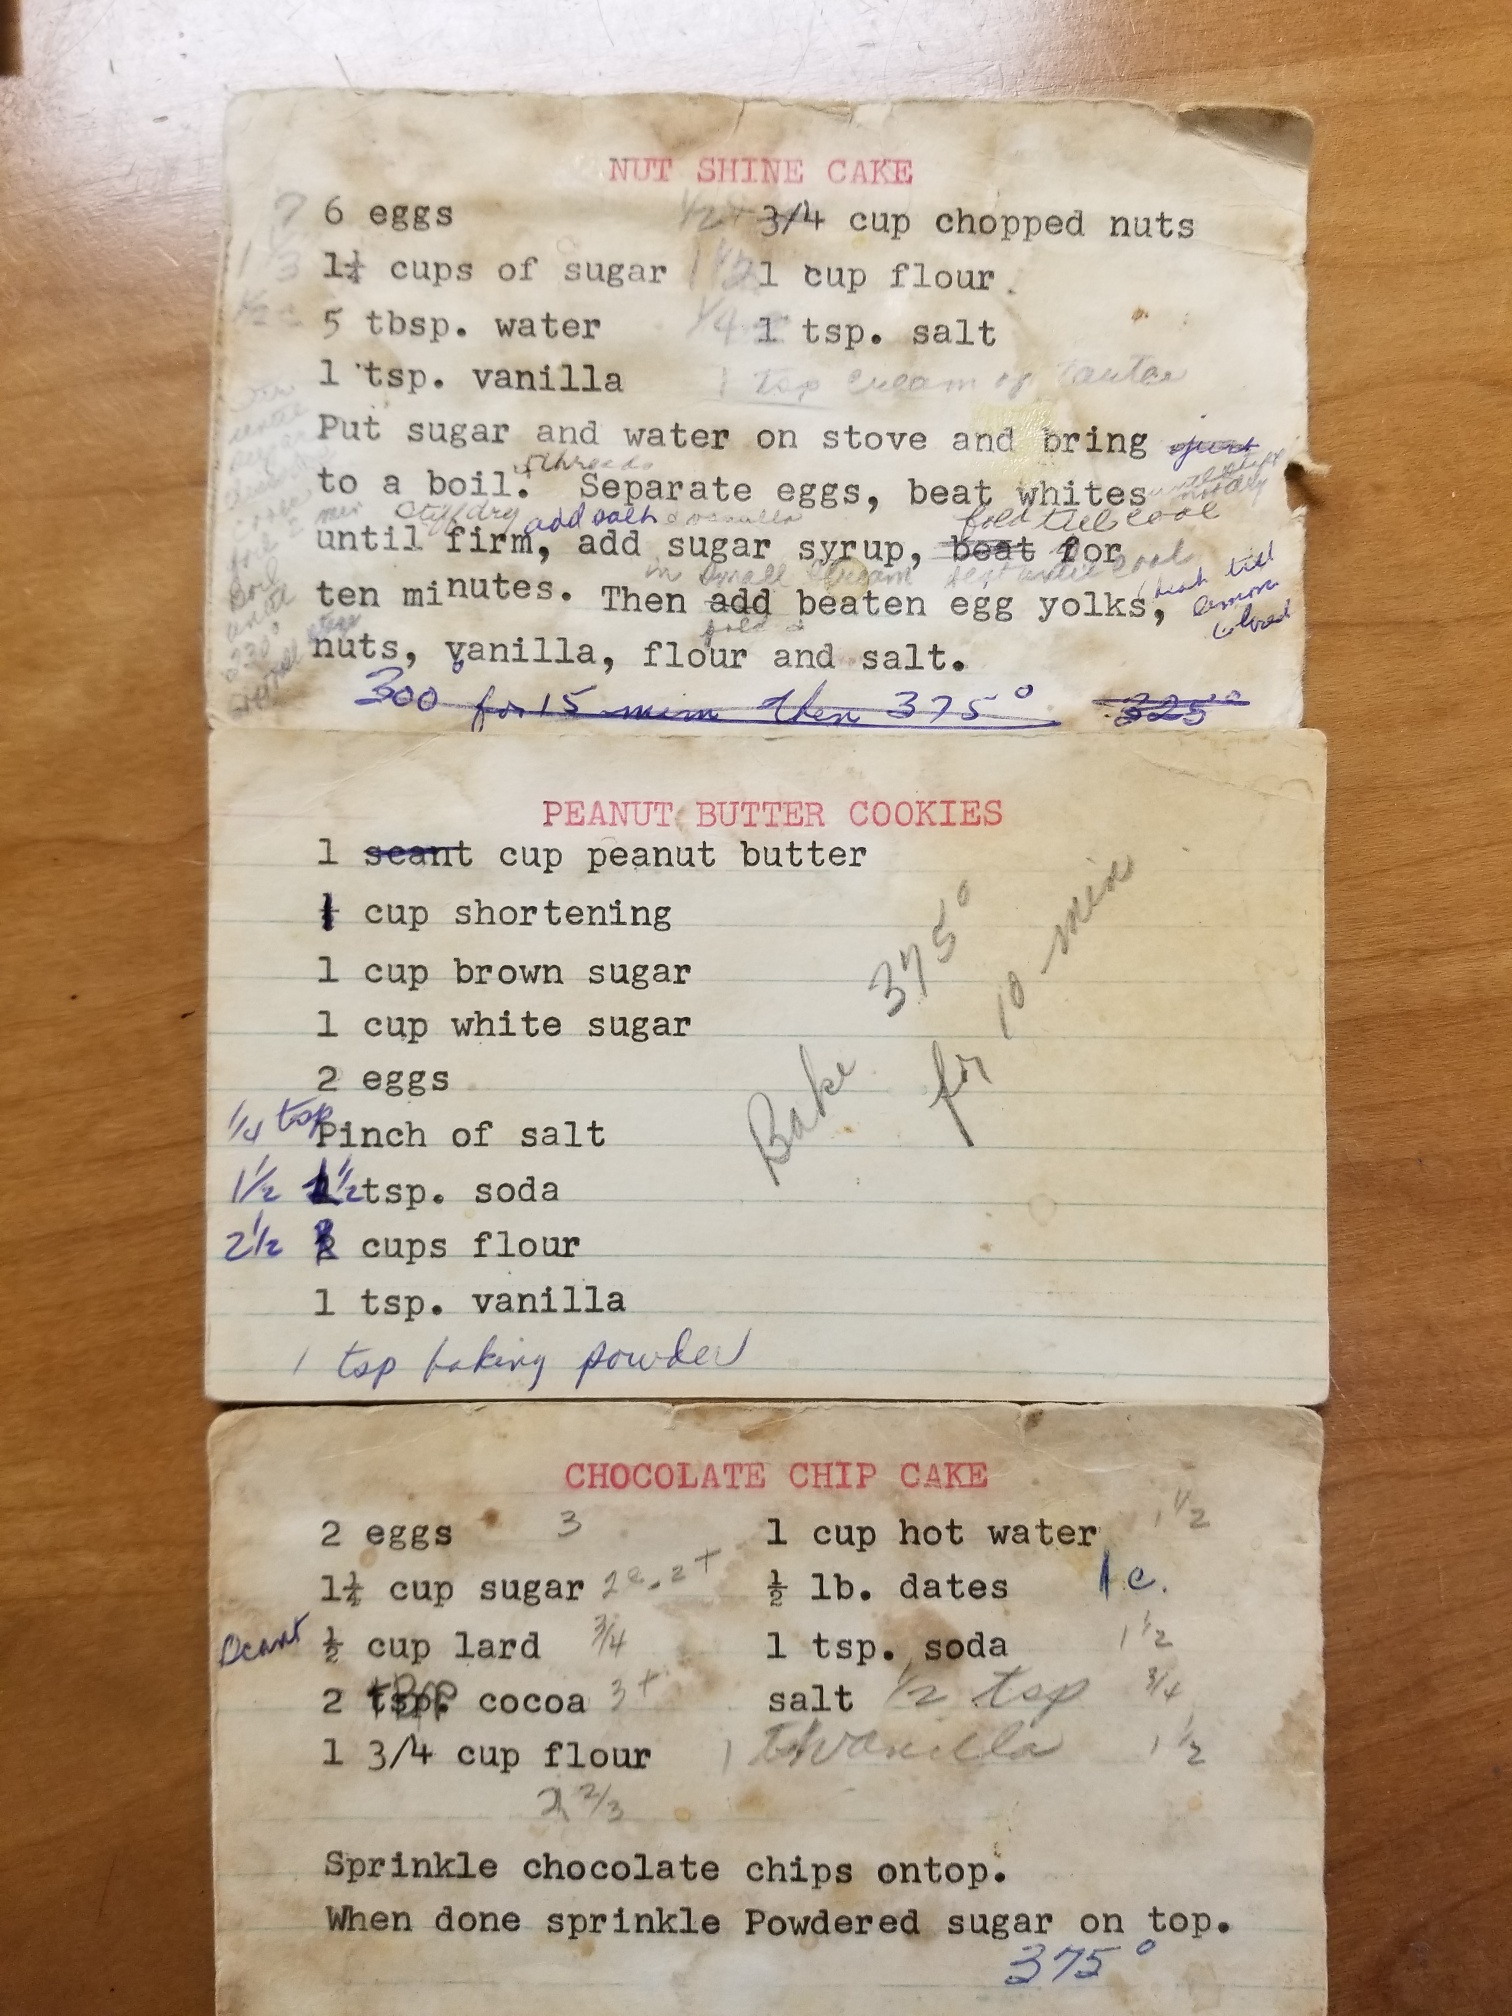 NUT SHINE CAKE
7 6 eggs 1/2+ 3/4 cup chopped nuts
1 1/3 1¼ cups of sugar 1 1/2 1 cup flour.
1/2 5 tbsp. water 1/4 1 tsp. salt
1 tsp. vanilla 1 tsp cream of tartar
Put sugar and water on stove and bring
to a boil. threads Separate eggs, beat whites
stiff dry add salt & vanilla fold till cool
until firm, add sugar syrup, beat for
in small stream beat until cool
ten minutes. Then add beaten egg yolks, beat till lemon colored
fold
nuts, vanilla, flour and salt.
Boil until 230°
300 for 15 mim then 375° 325°
PEANUT BUTTER COOKIES
1 scant cup peanut butter
cup shortening
1 cup brown sugar
1 cup white sugar
2 eggs
1/4 tsp Pinch of salt
1 1/2 1 1/2 tsp. soda
2 1/2 2 cups flour
1 tsp. vanilla
1 tsp baking powder
Bake 375°
for 10 min
CHOCOLATE CHIP CAKE
2 eggs 3 1 cup hot water 1 1/2
1¼ cup sugar 2c. 2+ ½ lb. dates 1 c.
Scant ½ cup lard 3/4 1 tsp. soda 1 1/2
2 tbsp. cocoa 3+ salt 1/2 tsp 3/4
1 3/4 cup flour 1 t vanilla 1 1/2
2 2/3
Sprinkle chocolate chips ontop.
When done sprinkle Powdered sugar on top.
375°